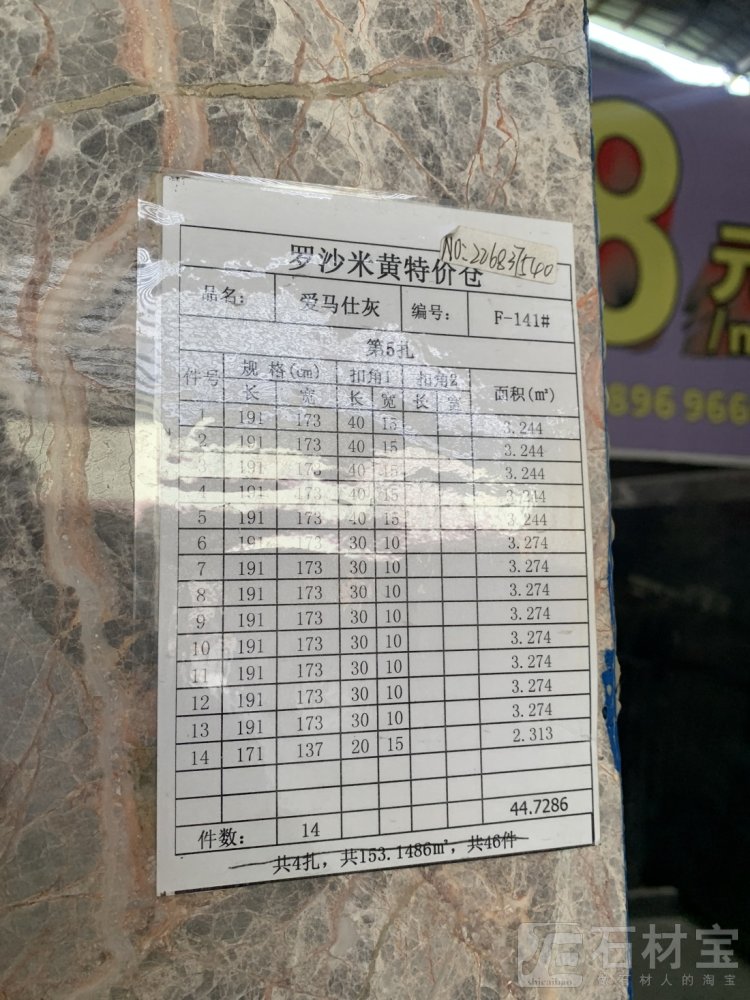 罗沙米黄特价仓
品名: 爱马仕灰 编号: F-141#
第5扎
件号 规格(cm) 扣角1 扣角2 面积(㎡)
长 宽 长 宽 长 宽
1 191 173 40 15 3.244
2 191 173 40 15 3.244
3 191 173 40 15 3.244
4 191 173 40 15 3.244
5 191 173 40 15 3.244
6 191 173 30 10 3.274
7 191 173 30 10 3.274
8 191 173 30 10 3.274
9 191 173 30 10 3.274
10 191 173 30 10 3.274
11 191 173 30 10 3.274
12 191 173 30 10 3.274
13 191 173 30 10 3.274
14 171 137 20 15 2.313
44.7286
件数: 14
共4扎，共153.1486㎡，共46件
8元
896 966
石材宝
shicaibao
石材人的淘宝